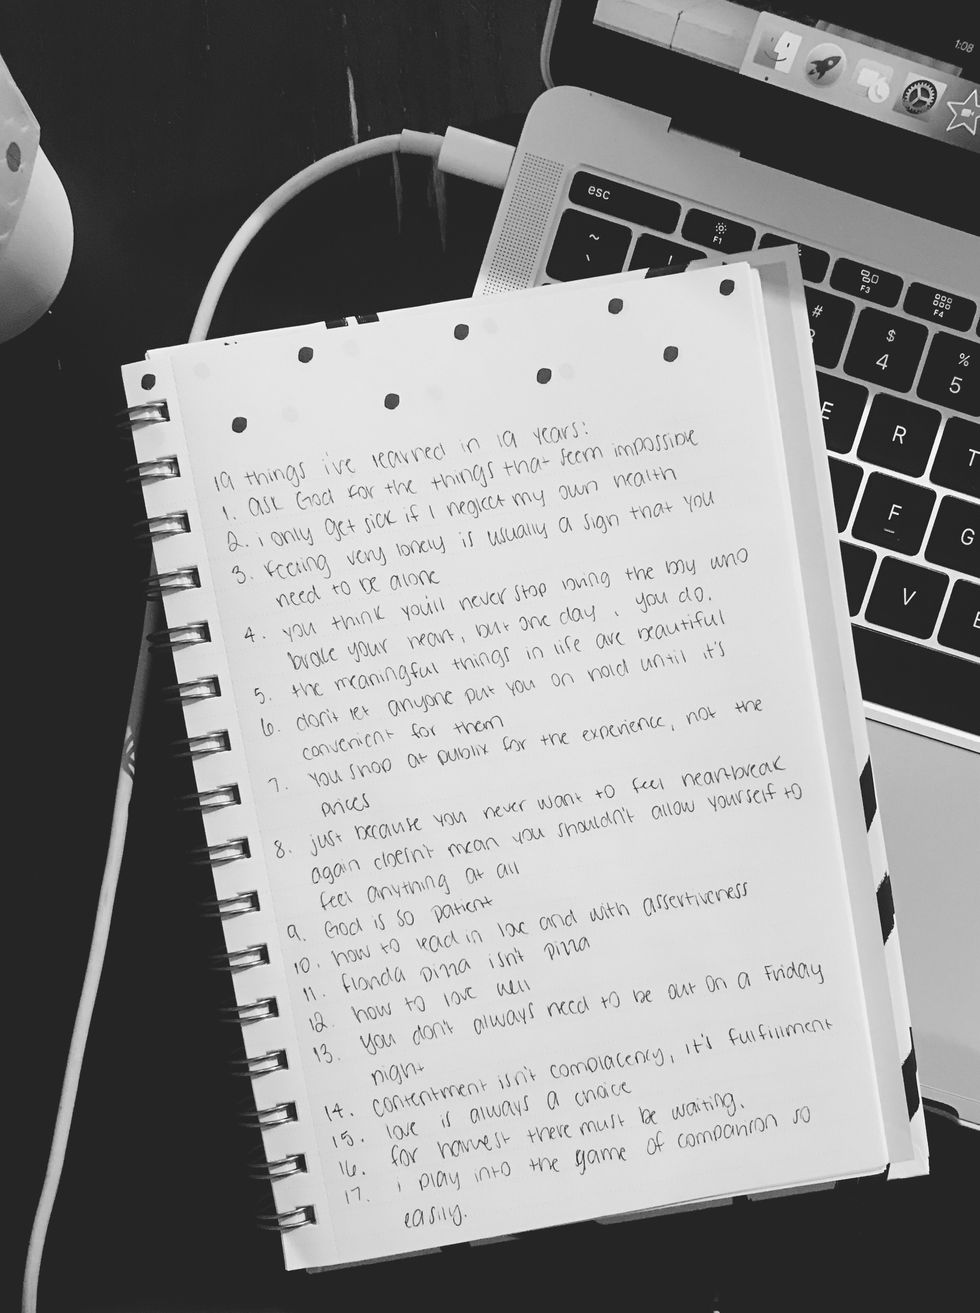 1:08
esc
~
`
!
F1
F3
F4
#
$
4
%
5
E
R
T
F
G
V
19 things i've learned in 19 years:
1. ask God for the things that seem impossible
2. i only get sick if I neglect my own health
3. feeling very lonely is usually a sign that you
need to be alone
4. you think you'll never stop loving the boy who
broke your heart, but one day, you do.
5. the meaningful things in life are beautiful
6. don't let anyone put you on hold until it's
convenient for them
7. you shop at publix for the experience, not the
prices
8. just because you never want to feel heartbreak
again doesn't mean you shouldn't allow yourself to
feel anything at all
9. God is so patient
10. how to lead in love and with assertiveness
11. florida pizza isn't pizza
12. how to love well
13. you don't always need to be out on a Friday
night
14. contentment isn't complacency, it's fulfillment
15. love is always a choice
16. for harvest there must be waiting.
17. i play into the game of comparison so
easily.